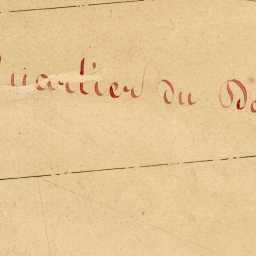 Quartier du